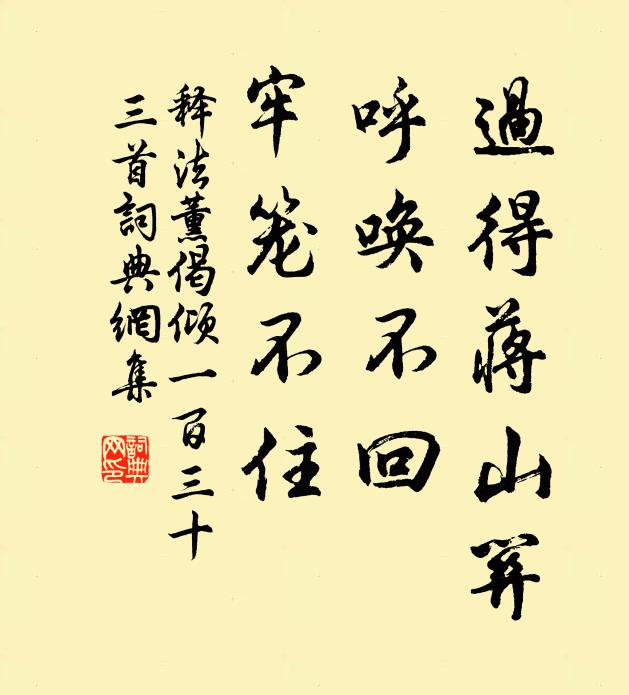 過得蔣山關
呼喚不回
牢笼不住
释法薰偈傾一百三十
三首詞典網集
詞典网印